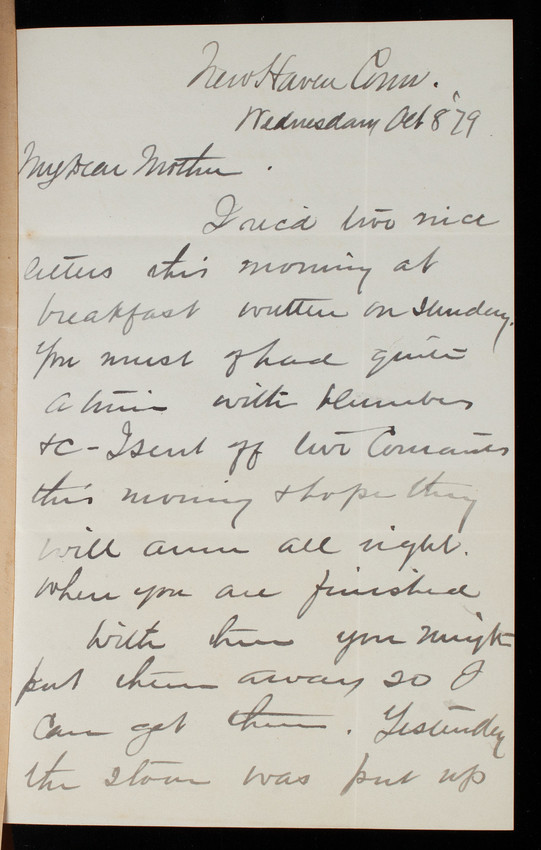 New Haven Conn.
Wednesday Oct 8 '79
My Dear Mother.
I rec'd two nice
letters this morning at
breakfast written on Sunday.
You must of had quite
a time with plumbers
&c - I sent off two Courants
this morning & hope they
will arrive all right.
When you are finished
with them you might
put them away so I
can get them. Yesterday
the stove was put up